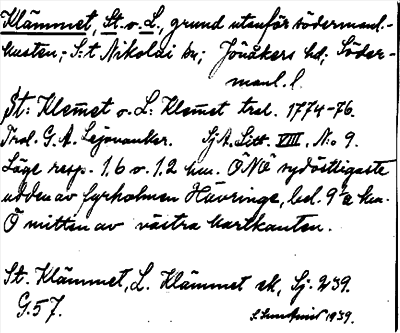 Klämmet, St. o. L., grund utanför södermanl.-
kusten; S:t Nikolai sn; Jönåkers hd; Söder-
manl. l.
St: Klem̅et o. L: Klem̅et trol. 1774-76.
Trol. G. A. Lejonanker. SjA. Litt. VIII, No 9.
Läge resp. 1,6 o. 1,2 km. ÖNÖ sydöstligaste
udden av fyrholmen Hävringe, bel. 9 km.
Ö mitten av västra kartkanten.
St. Klämmet, L. Klämmet sk, Sj. 239.
G. 57.
1939.